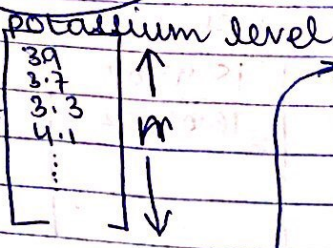 potassium level
39
3.7
3.3
4.1
⋮
n